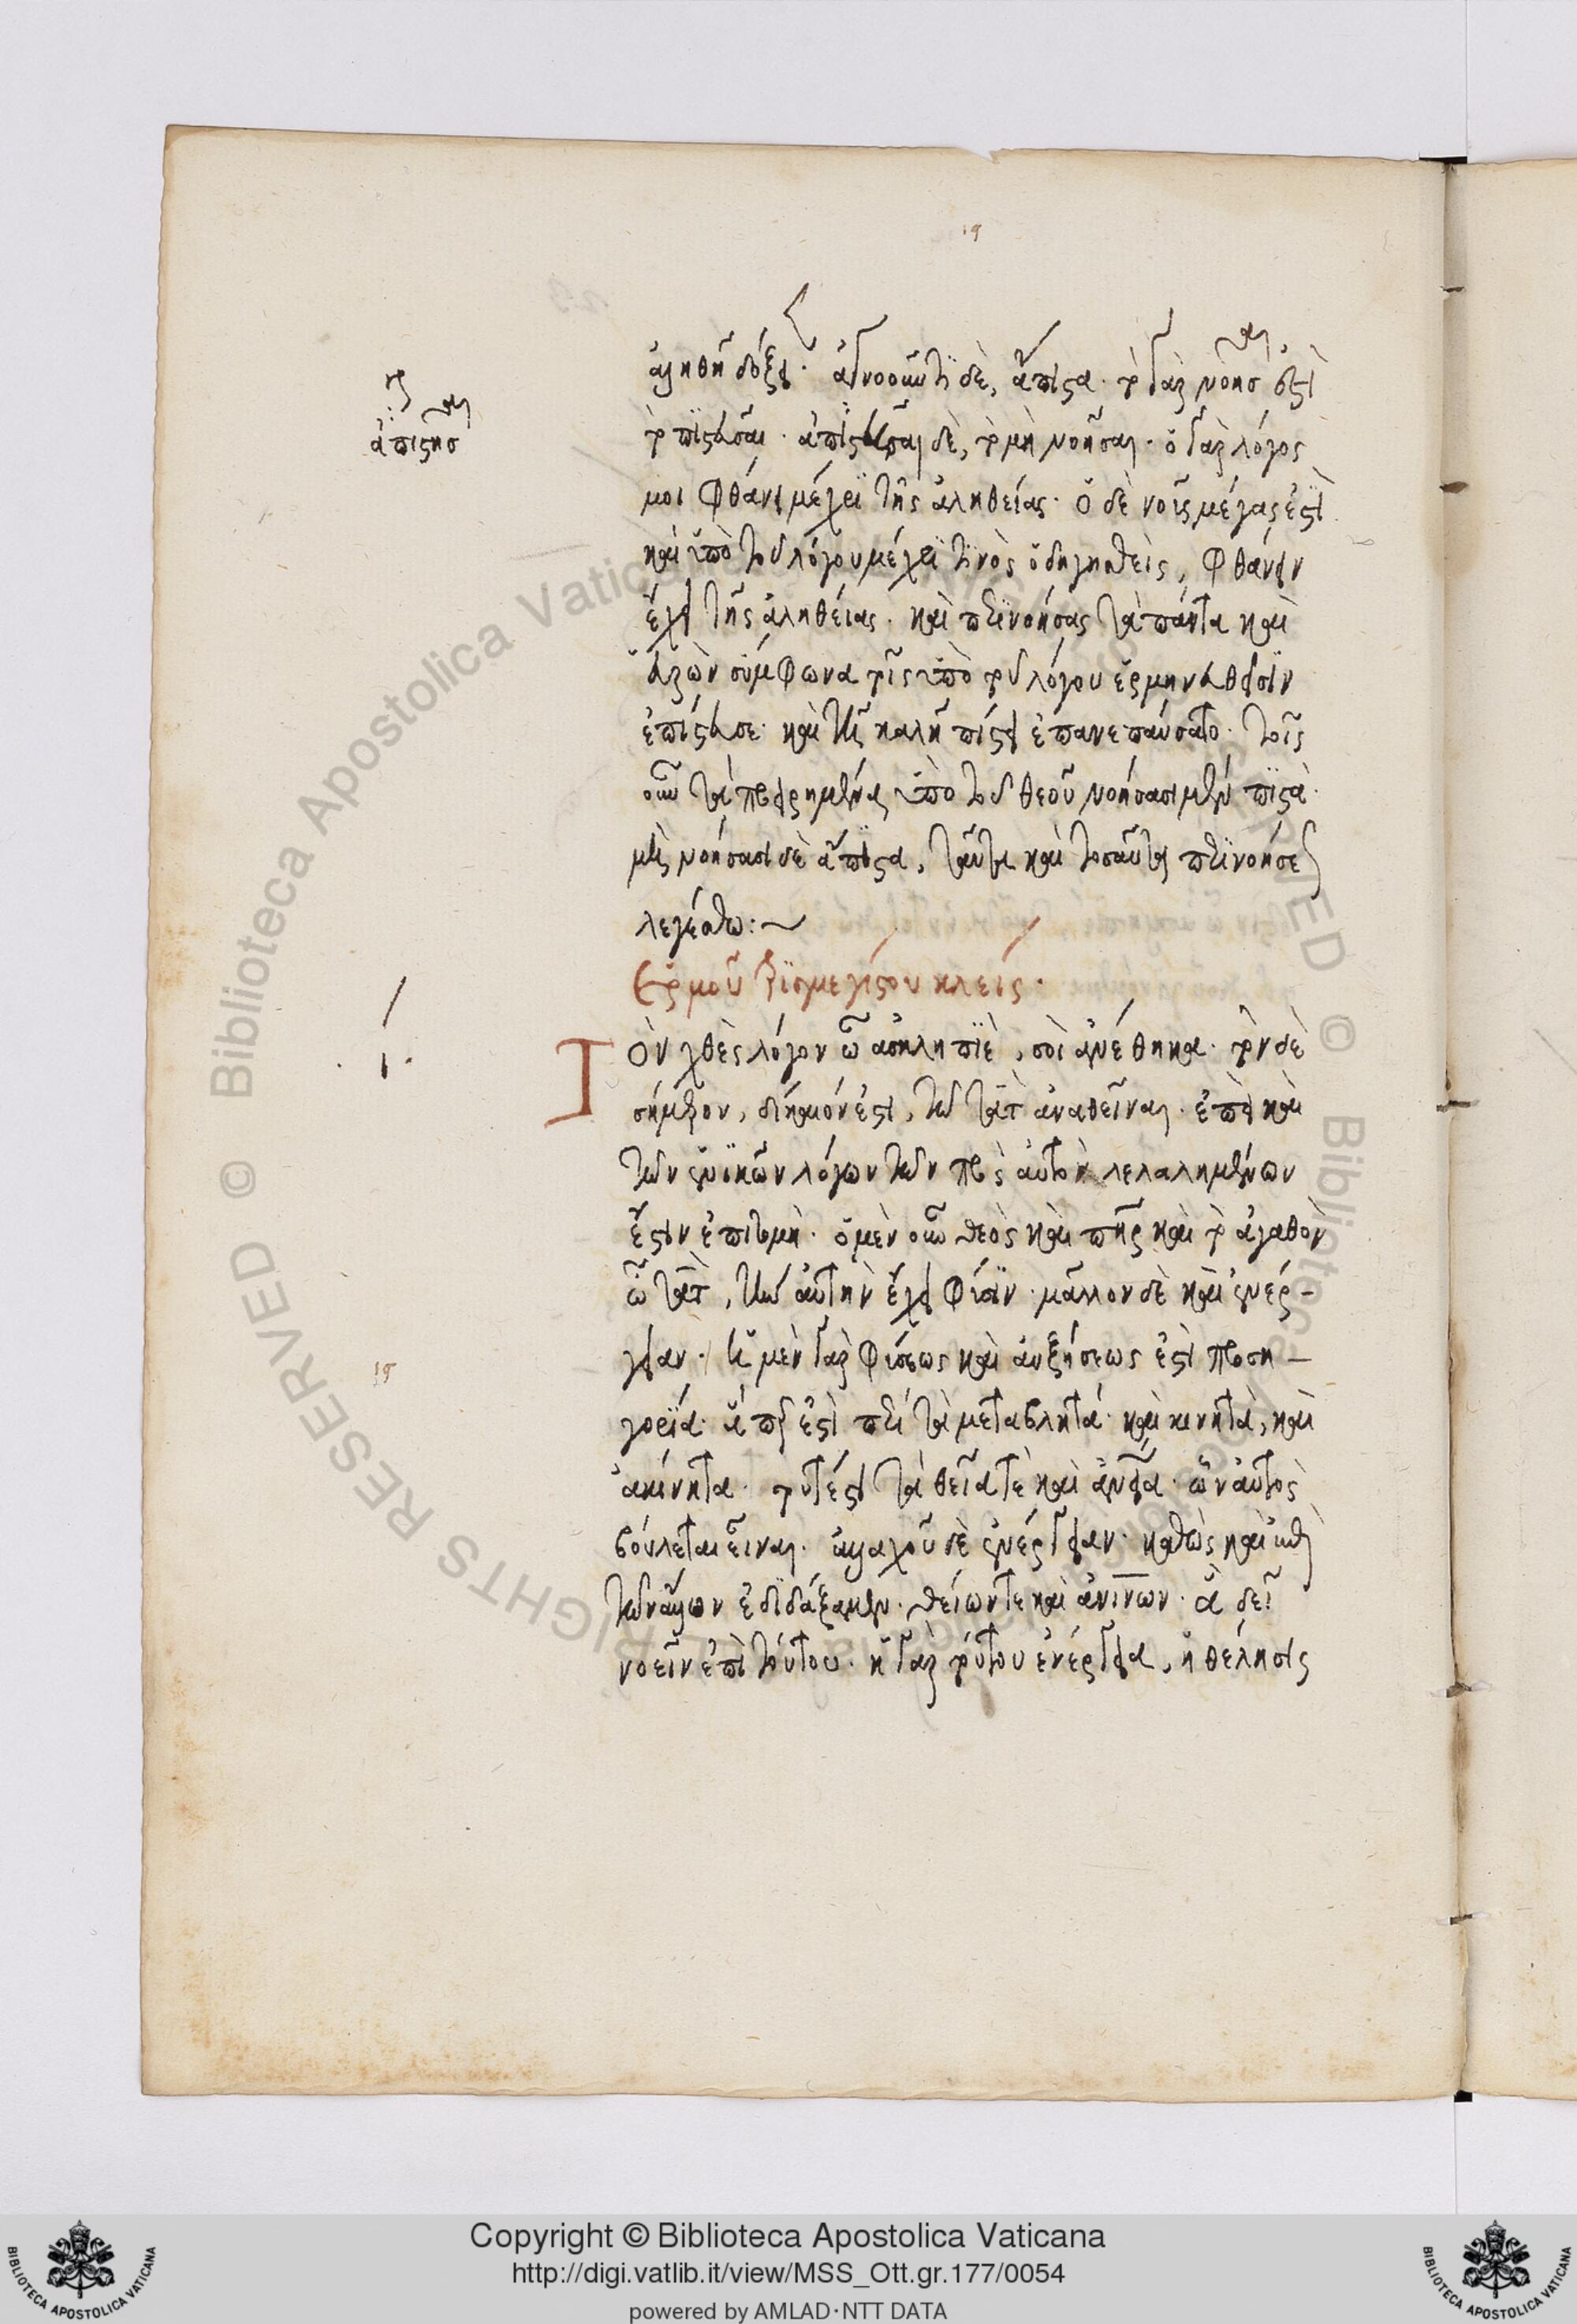 19
ἀληθῆ δόξει· ἀγνοοῦντι δὲ, ἄπιστα· τὸ γὰρ νοῆσαι ἐστὶ
τὸ πιστεῦσαι· ἀπιστεῦσαι δὲ, τὸ μὴ νοῆσαι· ὁ γὰρ λόγος
ἀπιστῆσαι
μοι φθάνει μέχρι τῆς ἀληθείας· ὁ δὲ νοῦς μέγας ἐστὶ
καὶ ὑπὸ τοῦ λόγου μέχρι τινὸς ὁδηγηθεὶς, φθάνειν
ἔχει τῆς ἀληθείας· καὶ περινοήσας τὰ πάντα καὶ
εὑρὼν σύμφωνα τοῖς ὑπὸ τοῦ λόγου ἑρμηνευθεῖσιν
ἐπίστευσε· καὶ τῇ καλῇ πίστει ἐπανεπαύσατο· τοῖς
οὖν τὰ προειρημένα ὑπὸ τοῦ θεοῦ νοήσασι μὲν πιστὰ·
μὴ νοήσασι δὲ ἄπιστα, ταῦτα καὶ τοσαῦτα περὶ νοήσεως
λεγέσθω:~
Ἑρμοῦ τρισμεγίστου κλείς·
Τὸν χθὲς λόγον ὦ ἀσκληπιὲ, σοὶ ἀνέθηκα· τὸν δὲ
σήμερον, δίκαιόν ἐστι, τῷ τὰτ ἀναθεῖναι· ἐπεὶ καὶ
τῶν γενικῶν λόγων τῶν πρὸς αὐτὸν λελαλημένων
ἔστιν ἐπιτομὴ· ὁ μὲν οὖν θεὸς καὶ πατὴρ καὶ τὸ ἀγαθὸν
ὦ τὰτ, τὴν αὐτὴν ἔχει φύσιν· μᾶλλον δὲ καὶ ἐνέρ-
γειαν· ἡ μὲν γὰρ φύσεως καὶ αὐξήσεως ἐστὶ προση-
γορία· ἅπερ ἐστὶ περὶ τὰ μεταβλητά· καὶ κινητὰ, καὶ
ἀκίνητα· τουτέστι τὰ θεῖά τε καὶ ἀνθρώπεια· ὧν αὐτὸς
βούλεται εἶναι· ἀλλαχοῦ δὲ ἐνέργειαν· καθὼς καὶ ἐπὶ
τῶν ἄλλων ἐδιδάξαμεν· θείων τε καὶ ἀνίνων· ἃ δεῖ
νοεῖν ἐπὶ τούτου· ἡ γὰρ τούτου ἐνέργεια, ἡ θέλησις
Copyright © Biblioteca Apostolica Vaticana
http://digi.vatlib.it/view/MSS_Ott.gr.177/0054
powered by AMLAD·NTT DATA